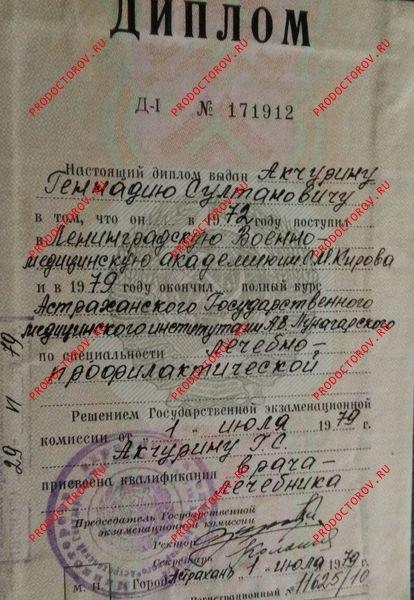 ДИПЛОМ
Д-I № 171912
Настоящий диплом выдан Акчурину
Геннадию Султановичу
в том, что он в 1972 году поступил
в Ленинградскую Военно-
медицинскую академию им С.М.Кирова
и в 1979 году окончил полный курс
Астраханского Государственного
медицинского института им А.В.Луначарского
по специальности лечебно-
профилактической
Решением Государственной экзаменационной
комиссии от „1" июля 1979 г.
Акчурину Г.С
присвоена квалификация врача-
лечебника
Председатель Государственной
экзаменационной комиссии
Ректор
Секретарь
М. П. Город Астрахань „1" июля 1979 г.
Регистрационный № 11625/10
29 VI 79
PRODOCTOROV.RU